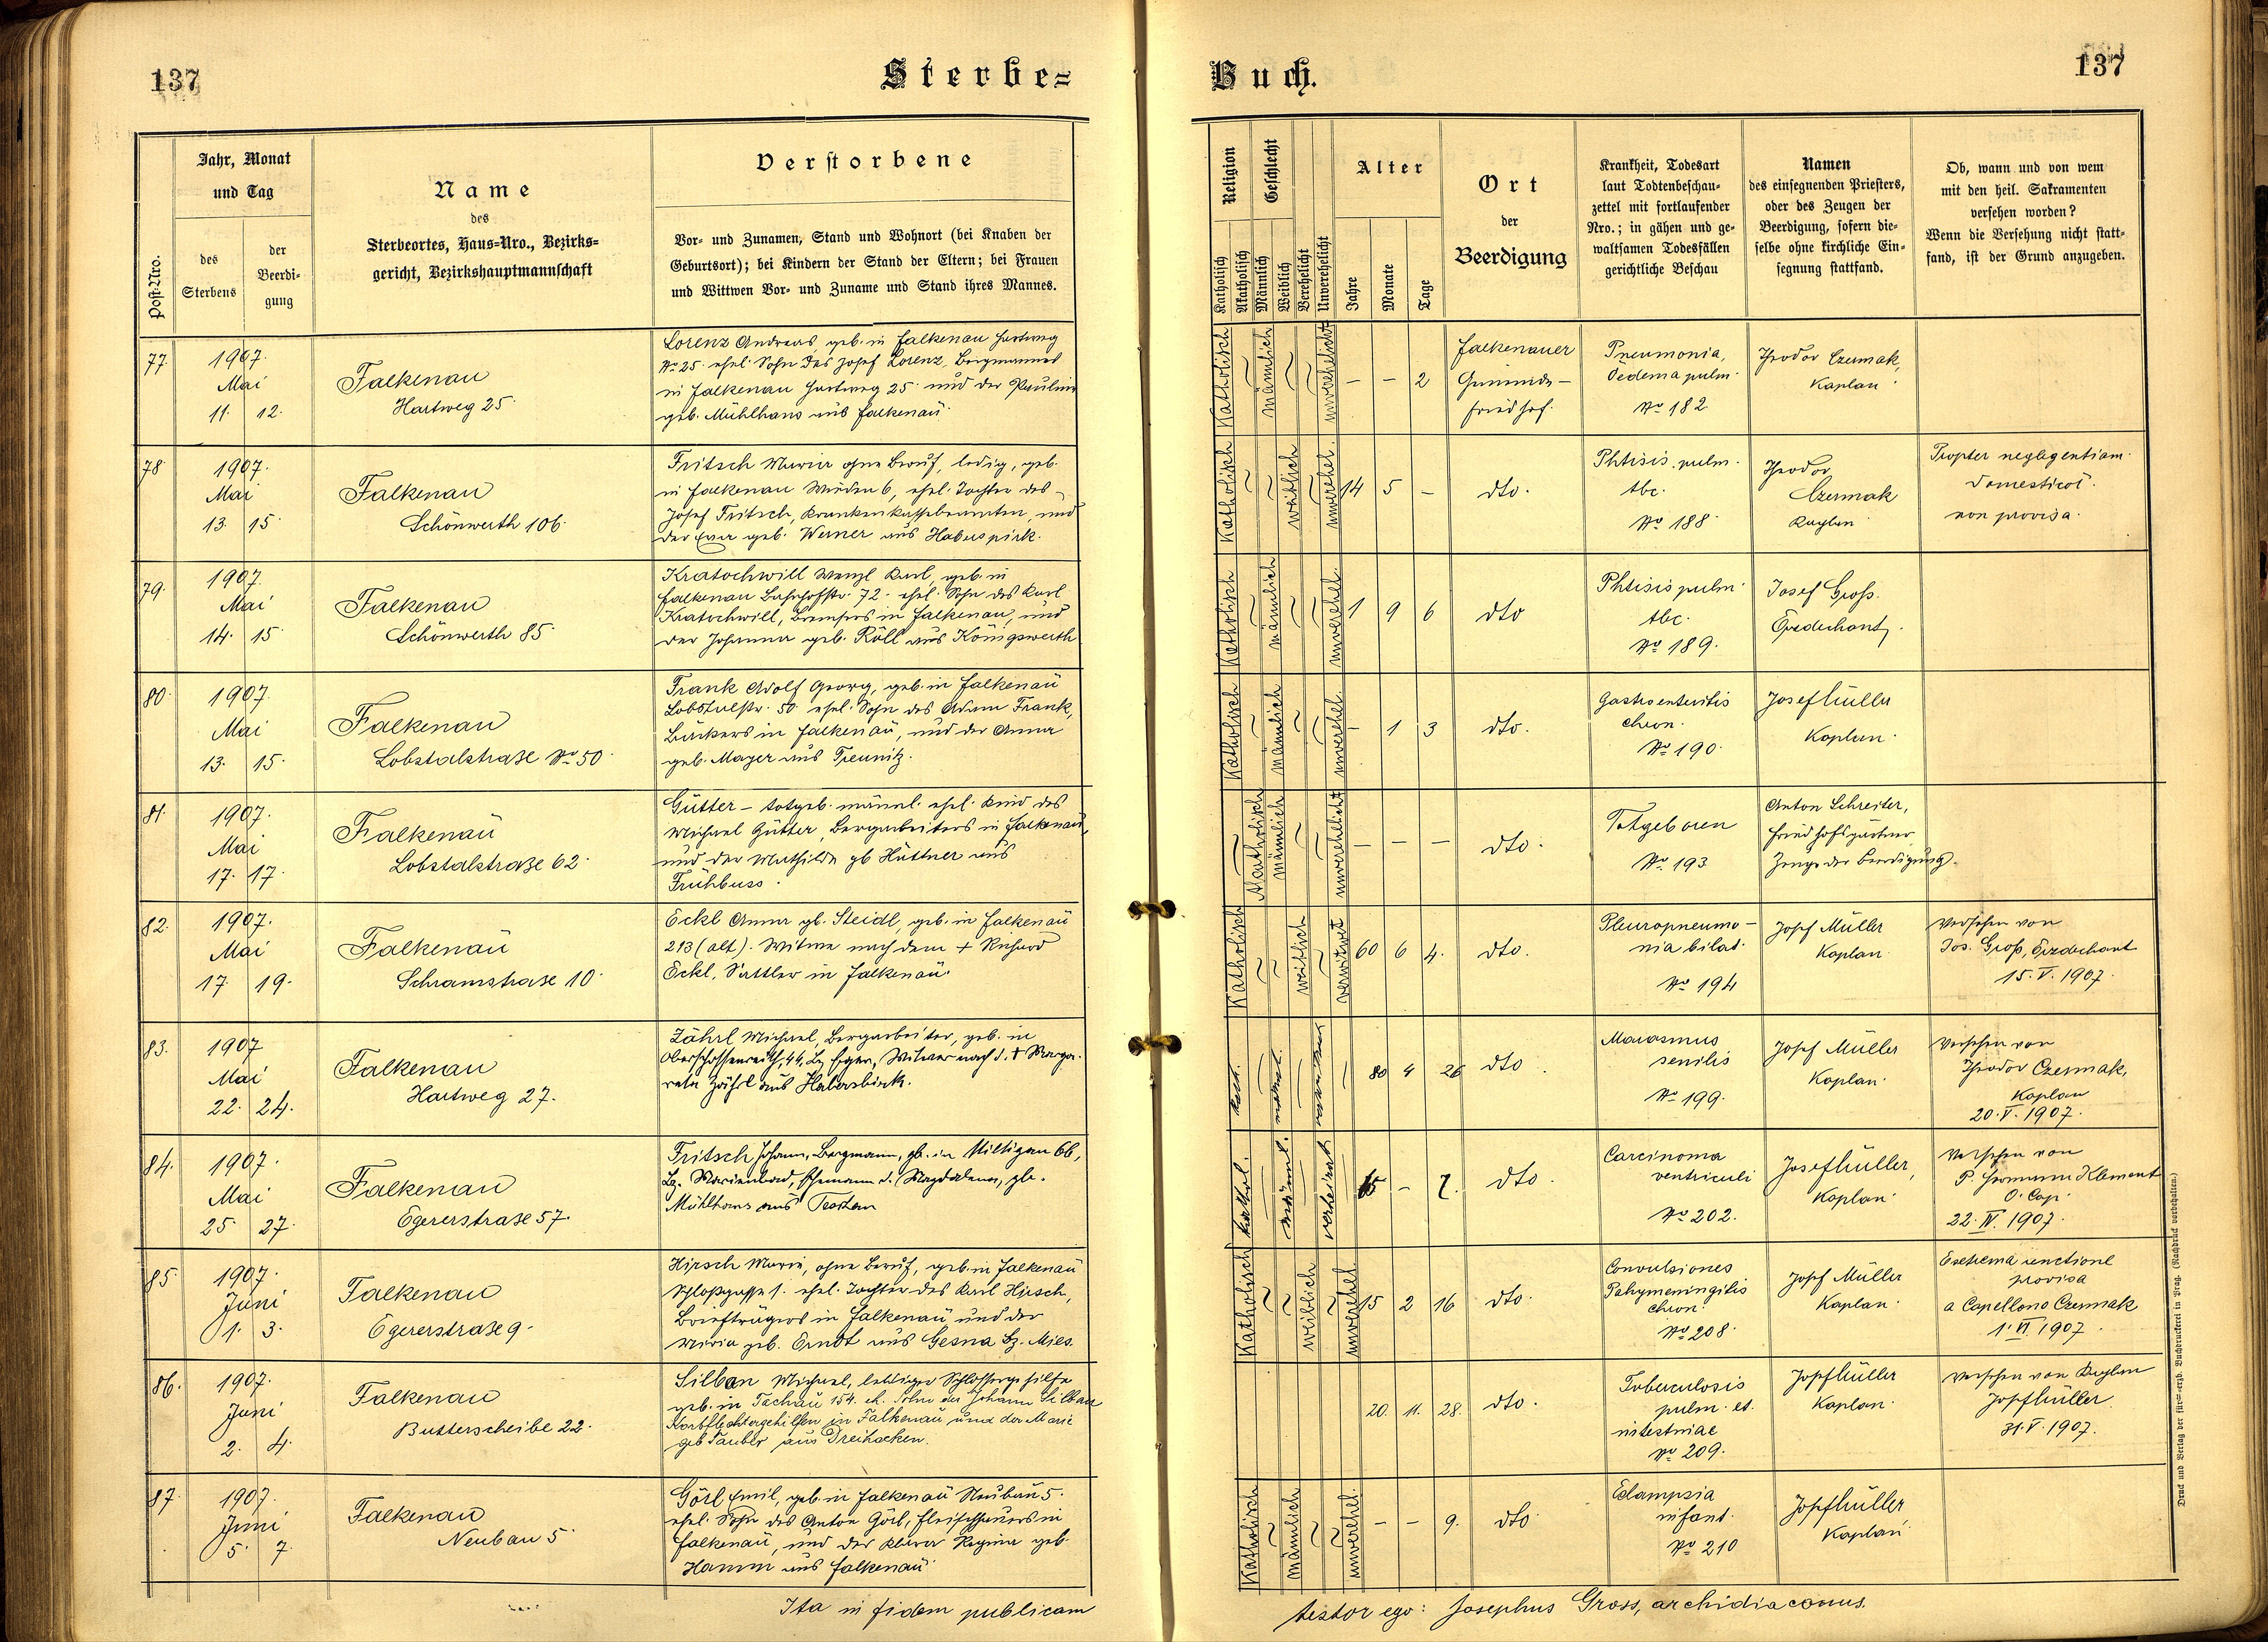 137
Sterbe=
Buch.
137
Post-Nro.
Jahr, Monat
und Tag
des
Sterbens
der
Beerdi-
gung
Name
des
Sterbeortes, Haus-Nro., Bezirks-
gericht, Bezirkshauptmannschaft
Verstorbene
Vor- und Zunamen, Stand und Wohnort (bei Knaben der
Geburtsort); bei Kindern der Stand der Eltern; bei Frauen
und Wittwen Vor- und Zuname und Stand ihres Mannes.
Religion
Katholisch
Akatholisch
Geschlecht
Männlich
Weiblich
Verehelicht
Unverehelicht
Alter
Jahre
Monate
Tage
Ort
der
Beerdigung
Krankheit, Todesart
laut Todtenbeschau-
zettel mit fortlaufender
Nro.; in gähen und ge-
waltsamen Todesfällen
gerichtliche Beschau
Namen
des einsegnenden Priesters,
oder des Zeugen der
Beerdigung, sofern die-
selbe ohne kirchliche Ein-
segnung stattfand.
Ob, wann und von wem
mit den heil. Sakramenten
versehen worden?
Wenn die Versehung nicht statt-
fand, ist der Grund anzugeben.
77.
1907.
Mai
11. 12.
Falkenau
Hartweg 25.
Lorenz Andreas, geb. in Falkenau Hartweg
No 25. ehel. Sohn des Josef Lorenz, Bergmannes
in Falkenau Hartweg 25. und der Pauline
geb. Mühlhans aus Falkenau.
Katholisch
männlich
unverehelicht
– – 2
Falkenauer
Gemeinde-
friedhof.
Pneumonia,
Oedema pulm.
No 182.
Theodor Czermak,
Kaplan.
78.
1907.
Mai
13. 15.
Falkenau
Schönwerth 106.
Fritsch Maria ohne Beruf, ledig, geb.
in Falkenau Wieden 6, ehel. Tochter des
Josef Fritsch, Krankenkassebeamten, und
der Eva geb. Werner aus Haberspirk.
Katholisch
weiblich
unverehel.
14 5 –
dto.
Phtisis pulm.
tbc.
No 188.
Theodor
Czermak
Kaplan
Propter neglegentiam
domesticor.
non provisa.
79.
1907.
Mai
14. 15.
Falkenau
Schönwerth 85.
Kratochwill Wenzl Karl, geb. in
Falkenau Bahnhofstr. 72. ehel. Sohn des Karl
Kratochwill, Bremsers in Falkenau, und
der Johanna geb. Röll aus Königswerth
Katholisch
männlich
unverehel.
1 9 6
dto
Phtisis pulm.
tbc.
No 189.
Josef Groß.
Erzdechant.
80.
1907.
Mai
13. 15.
Falkenau
Lobstalstraße No 50.
Frank Adolf Georg, geb. in Falkenau
Lobstalstr. 50. ehel. Sohn des Adam Frank,
Bäckers in Falkenau, und der Anna
geb. Mayer aus Treunitz.
Katholisch
männlich
unverehel.
– 1 3
dto.
Gastroenteritis
chron.
No 190.
Josef Müller
Kaplan.
81.
1907.
Mai
17. 17.
Falkenau
Lobstalstraße 62.
Gütter – totgeb. männl. ehel. Kind des
Michael Gütter, Bergarbeiters in Falkenau,
und der Mathilde gb Hüttner aus
Frühbuss.
Akatholisch
männlich
unverehelicht
– – –
dto.
Totgeboren
No 193
Anton Schreiter,
Friedhofsgärtner
Zeuge der Beerdigung.
82.
1907.
Mai
17. 19.
Falkenau
Schramstrase 10.
Eckl Anna gb. Steidl, geb. in Falkenau
213 (alt). Witwe nach dem + Richard
Eckl, Sattler in Falkenau.
Katholisch
weiblich
verwitwet
60 6 4.
dto.
Pleuropneumo-
nia bilat.
No 194
Josef Müller
Kaplan
Versehen von
Jos. Groß, Erzdechant
15. V. 1907.
83.
1907
Mai
22. 24.
Falkenau
Hartweg 27.
Zährl Michael, Bergarbeiter, geb. in
Oberschossenreith, 44, Bz Eger, Witwer nach d. + Marga-
reta Zährl aus Haberspirk.
kath.
männl.
80 4 26
dto.
Marasmus
senilis
No 199.
Josef Müller
Kaplan.
Versehen von
Theodor Czermak,
Kaplan
20. V. 1907.
84.
1907.
Mai
25. 27.
Falkenau
Egererstrase 57.
Fritsch Johann, Bergmann, gb. in Miltigau 66,
Bz. Marienbad, Ehemann d. Magdalena, gb.
Mühlhans aus
kathol.
männl.
verheirat
– 7.
dto.
Carcinoma
ventriculi
No 202.
Josef Müller,
Kaplan.
Versehen von
P. Hermann Klement
O. Cap.
22. IV. 1907.
85.
1907.
Juni
1. 3.
Falkenau
Egererstrase 9.
Hirsch Maria, ohne Beruf, geb. in Falkenau
Schloßgasse 1. ehel. Tochter des Karl Hirsch,
Briefträgers in Falkenau und der
Maria geb. Erndt aus Gesna Bz. Mies.
Katholisch
weiblich
unverehel
15 2 16
dto.
Convulsiones
Pahymeningitis
chron.
No 208.
Josef Müller
Kaplan.
Exstrema unctione
provisa
a Capellono Czermak
1. VI. 1907.
86.
1907.
Juni
2. 4.
Falkenau
Butterscheibe 22.
Silban Michael, lediger Schlossergehilfe
geb. in Tachau 154. eh. Sohn des Johann Silban
Korbflechtergehilfen in Falkenau und der Marie
geb Tauber aus Dreihacken.
20. 11. 28.
dto.
Tuberculosis
pulm. et.
intestniae
No 209.
Josef Müller
Kaplan.
Versehen von Kaplan
Josef Müller
31. V. 1907.
87.
1907.
Juni
5. 7.
Falkenau
Neubau 5.
Görl Emil, geb. in Falkenau Neubau 5.
ehel. Sohn des Anton Görl, Fleischhauers in
Falkenau, und der Klara Regina geb.
Hamm aus Falkenau.
Katholisch
männlich
unverehel.
– – 9.
dto.
Eclampsia
infant.
No 210
Josef Müller
Kaplan.
Ita in fidem publicam
testor ego: Josephus Gross, archidiaconus.
Druck und Verlag der fürst-erzb. Buchdruckerei in Prag. (Nachdruck vorbehalten.)